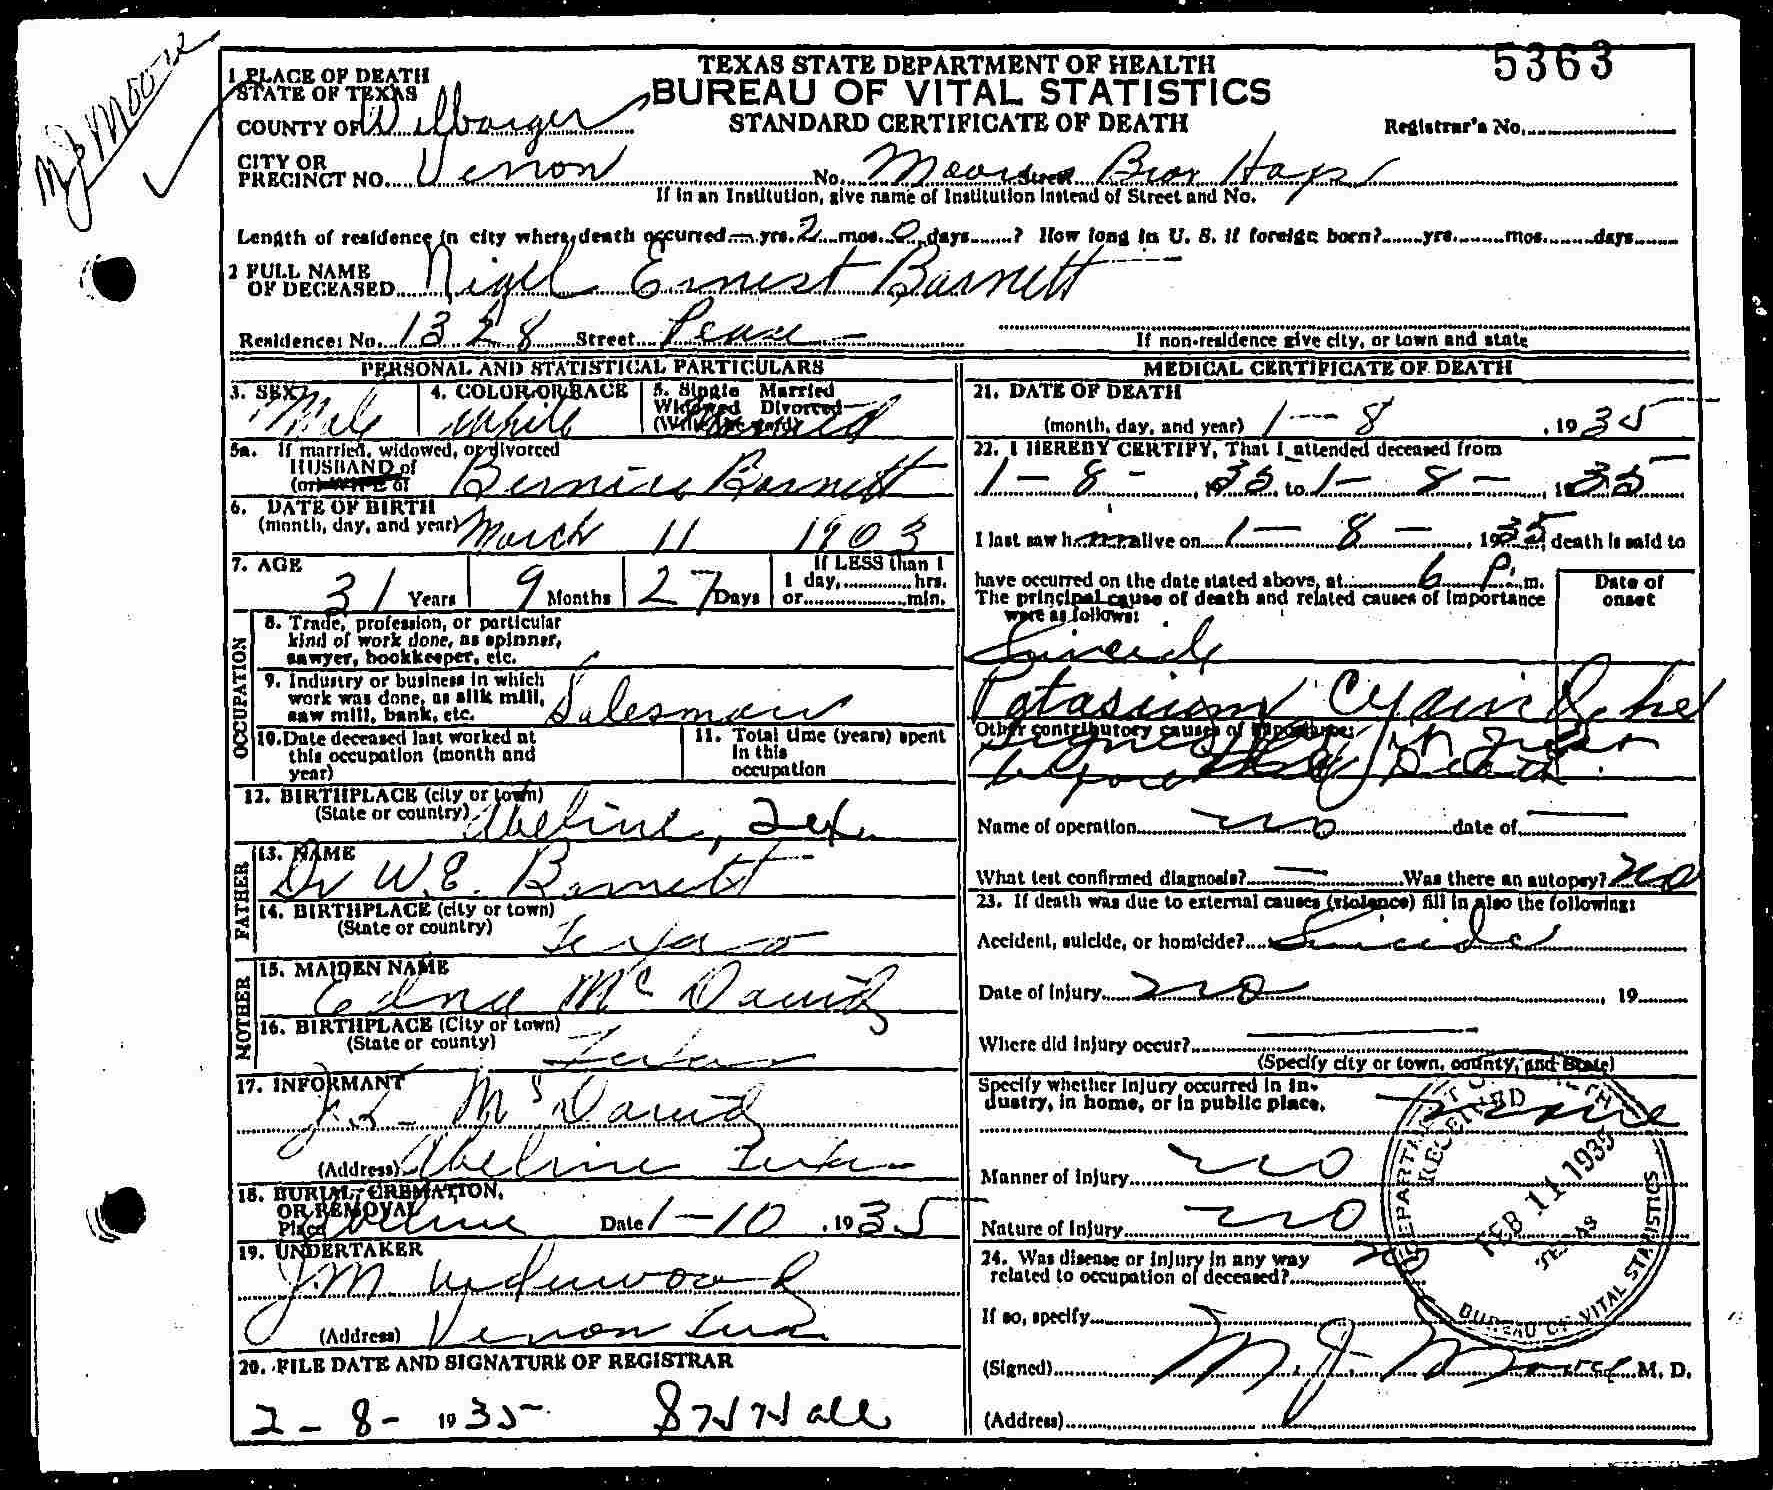 M J Moore
5363
TEXAS STATE DEPARTMENT OF HEALTH
BUREAU OF VITAL STATISTICS
STANDARD CERTIFICATE OF DEATH
Registrar's No.
1 PLACE OF DEATH
STATE OF TEXAS
COUNTY OF Wilbarger
CITY OR
PRECINCT NO. Vernon No. Moore Bros Hosp Street
If in an Institution, give name of Institution instead of Street and No.
Length of residence in city where death occurred — yrs. 2 mos. 0 days ? How long in U. S. if foreign born? yrs. mos. days
2 FULL NAME
OF DECEASED Nigel Ernest Barnett
Residence: No. 1328 Street
If non-residence give city, or town and state
PERSONAL AND STATISTICAL PARTICULARS
3. SEX Male 4. COLOR OR RACE White 5. Single Married
Widowed Divorced
(Write the word) Married
5a. If married, widowed, or divorced
HUSBAND of
(or) WIFE of Bernice Barnett
6. DATE OF BIRTH
(month, day, and year) March 11 1903
7. AGE 31 Years 9 Months 27 Days If LESS than 1
1 day, hrs.
or min.
OCCUPATION
8. Trade, profession, or particular
kind of work done, as spinner,
sawyer, bookkeeper, etc.
9. Industry or business in which
work was done, as silk mill,
saw mill, bank, etc. Salesman
10. Date deceased last worked at
this occupation (month and
year)
11. Total time (years) spent
in this
occupation
12. BIRTHPLACE (city or town)
(State or country) Abeline, Tex.
FATHER
13. NAME
Dr W.E. Barnett
14. BIRTHPLACE (city or town)
(State or country) Texas
MOTHER
15. MAIDEN NAME
Edna McDavid
16. BIRTHPLACE (City or town)
(State or county) Texas
17. INFORMANT
J.L. McDavid
(Address) Abeline Texas
18. BURIAL, CREMATION,
OR REMOVAL
Place Abeline Date 1-10, 1935
19. UNDERTAKER
J.M. Underwood
(Address) Vernon Texas
20. FILE DATE AND SIGNATURE OF REGISTRAR
2-8-1935 Hall
MEDICAL CERTIFICATE OF DEATH
21. DATE OF DEATH
(month, day, and year) 1-8, 1935
22. I HEREBY CERTIFY, That I attended deceased from
1-8-, 1935 to 1-8-, 1935
I last saw him alive on 1-8-, 1935, death is said to
have occurred on the date stated above, at 6 P. m.
The principal cause of death and related causes of importance
were as follows:
Date of
onset
Suicide
Potassium
Other contributory causes of importance:
Name of operation no date of —
What test confirmed diagnosis? — Was there an autopsy? no
23. If death was due to external causes (violence) fill in also the following:
Accident, suicide, or homicide? Suicide
Date of injury no, 19
Where did injury occur?
(Specify city or town, county, and State)
Specify whether injury occurred in in-
dustry, in home, or in public place.
Manner of injury no
Nature of injury no
24. Was disease or injury in any way
related to occupation of deceased? no
If so, specify
(Signed) M. J. Moore M. D.
(Address)
RECEIVED
FEB 11 1935
TEXAS
BUREAU OF VITAL STATISTICS